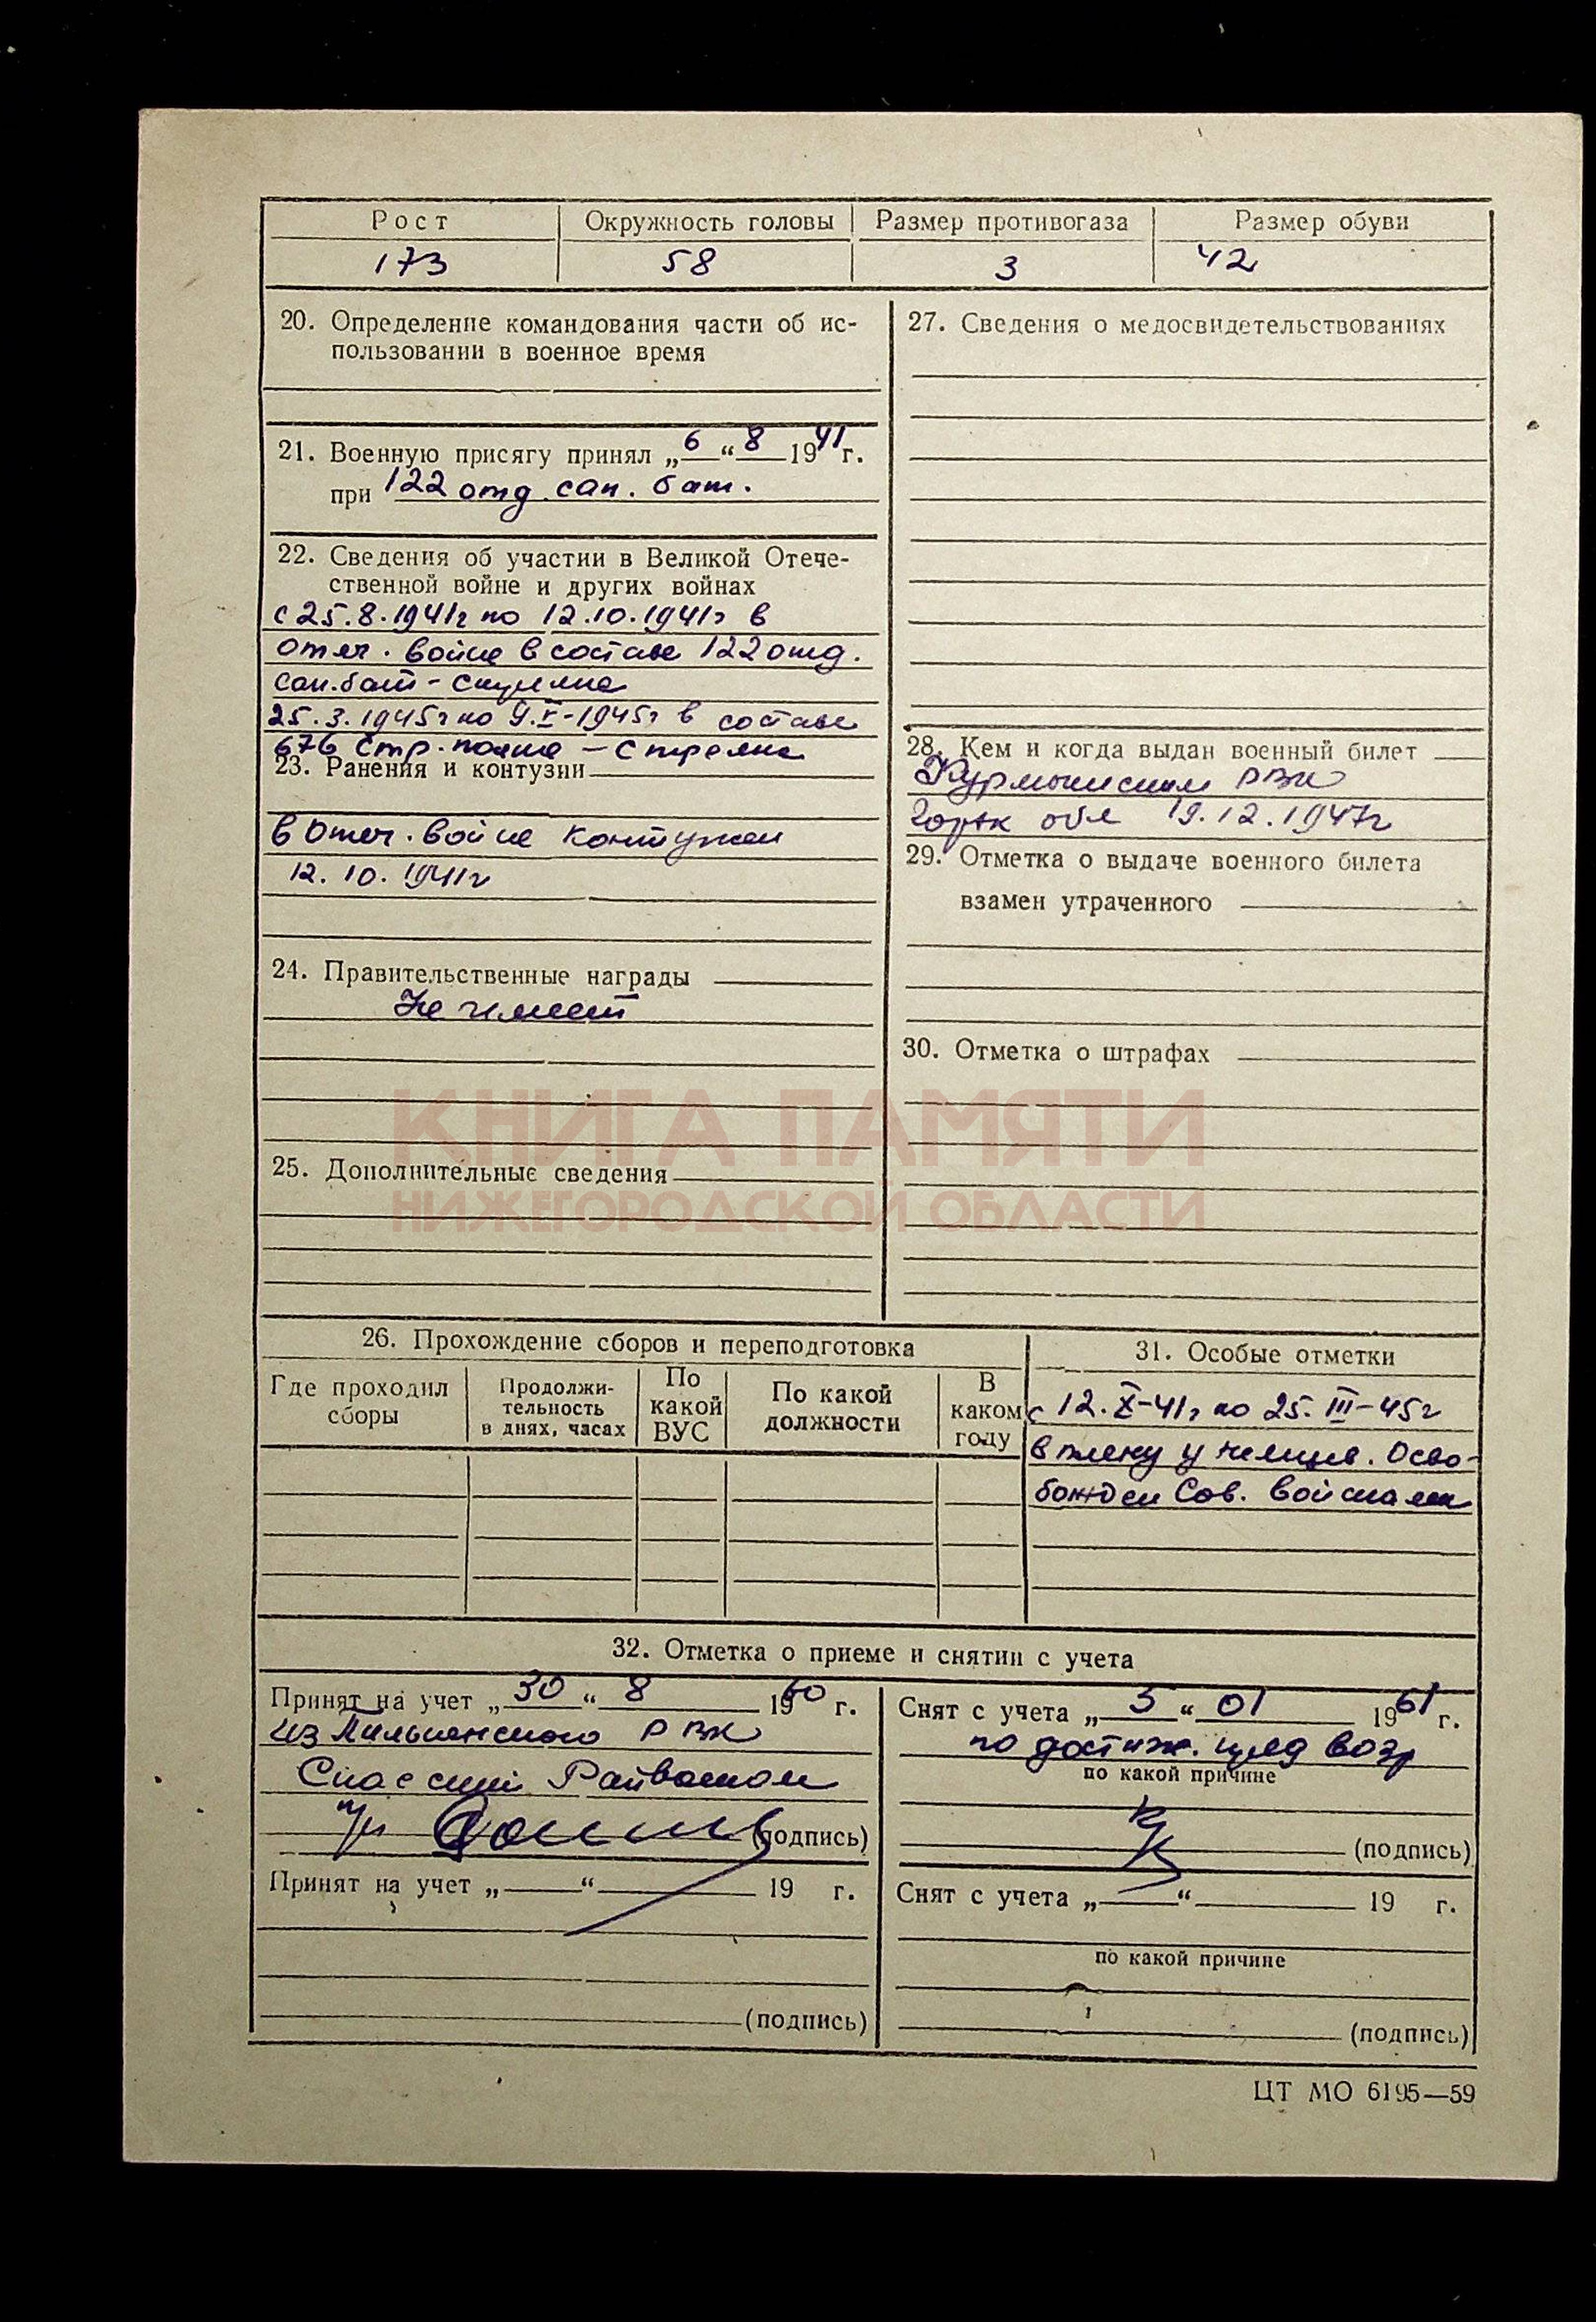 Рост
Окружность головы
Размер противогаза
Размер обуви
173
58
3
42
20. Определение командования части об ис-
пользовании в военное время
21. Военную присягу принял „6“ 8 1941г.
при 122 отд. сап. бат.
22. Сведения об участии в Великой Отече-
ственной войне и других войнах
с 25.8.1941г по 12.10.1941г в
отеч. войне в составе 122 отд.
сап. бат -
25.3.1945г по 9.V-1945г в составе
676 Стр. полка - стрелка
23. Ранения и контузии
в Отеч. войне контужен
12.10.1941г
24. Правительственные награды
Не имеет
25. Дополнительные сведения
27. Сведения о медосвидетельствованиях
28. Кем и когда выдан военный билет
Курмышским РВК
Горьк обл 19.12.1947г
29. Отметка о выдаче военного билета
взамен утраченного
30. Отметка о штрафах
КНИГА ПАМЯТИ
НИЖЕГОРОДСКОЙ ОБЛАСТИ
26. Прохождение сборов и переподготовка
Где проходил
сборы
Продолжи-
тельность
в днях, часах
По
какой
ВУС
По какой
должности
В
каком
году
31. Особые отметки
с 12.X-41г по 25.III-45г
в плену у немцев. Осво-
божден Сов. войсками
32. Отметка о приеме и снятии с учета
Принят на учет „30“ 8 1960 г.
из Пильненского РВК
Спасский Райвоенком
(подпись)
Принят на учет „ “ 19 г.
(подпись)
Снят с учета „5“ 01 1961 г.
по достиж. пред возр
по какой причине
(подпись)
Снят с учета „ “ 19 г.
по какой причине
(подпись)
ЦТ МО 6195—59